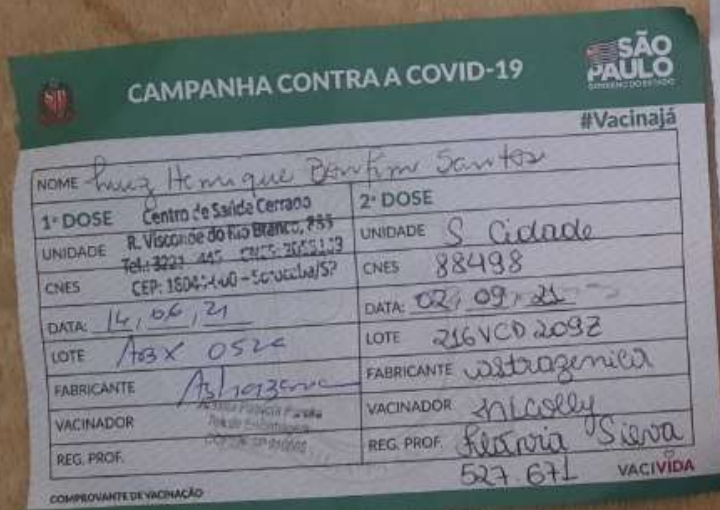 CAMPANHA CONTRA A COVID-19
SÃO PAULO
GOVERNO DO ESTADO
#Vacinajá
NOME Luiz Henrique Bonfim Santos
1ª DOSE Centro de Saúde Cerrado
UNIDADE R. Visconde do Rio Branco,
Tel.: 3221
CNES CEP: - Sorocaba/SP
DATA: 14, 06, 21
LOTE
FABRICANTE Astrazenica
VACINADOR
REG. PROF.
2ª DOSE
UNIDADE S Cidade
CNES 88498
DATA: 02, 09, 21
LOTE 216VCD209Z
FABRICANTE astrazenica
VACINADOR Nicolly
REG. PROF. Flavia Silva
527.671
VACIVIDA
COMPROVANTE DE VACINAÇÃO